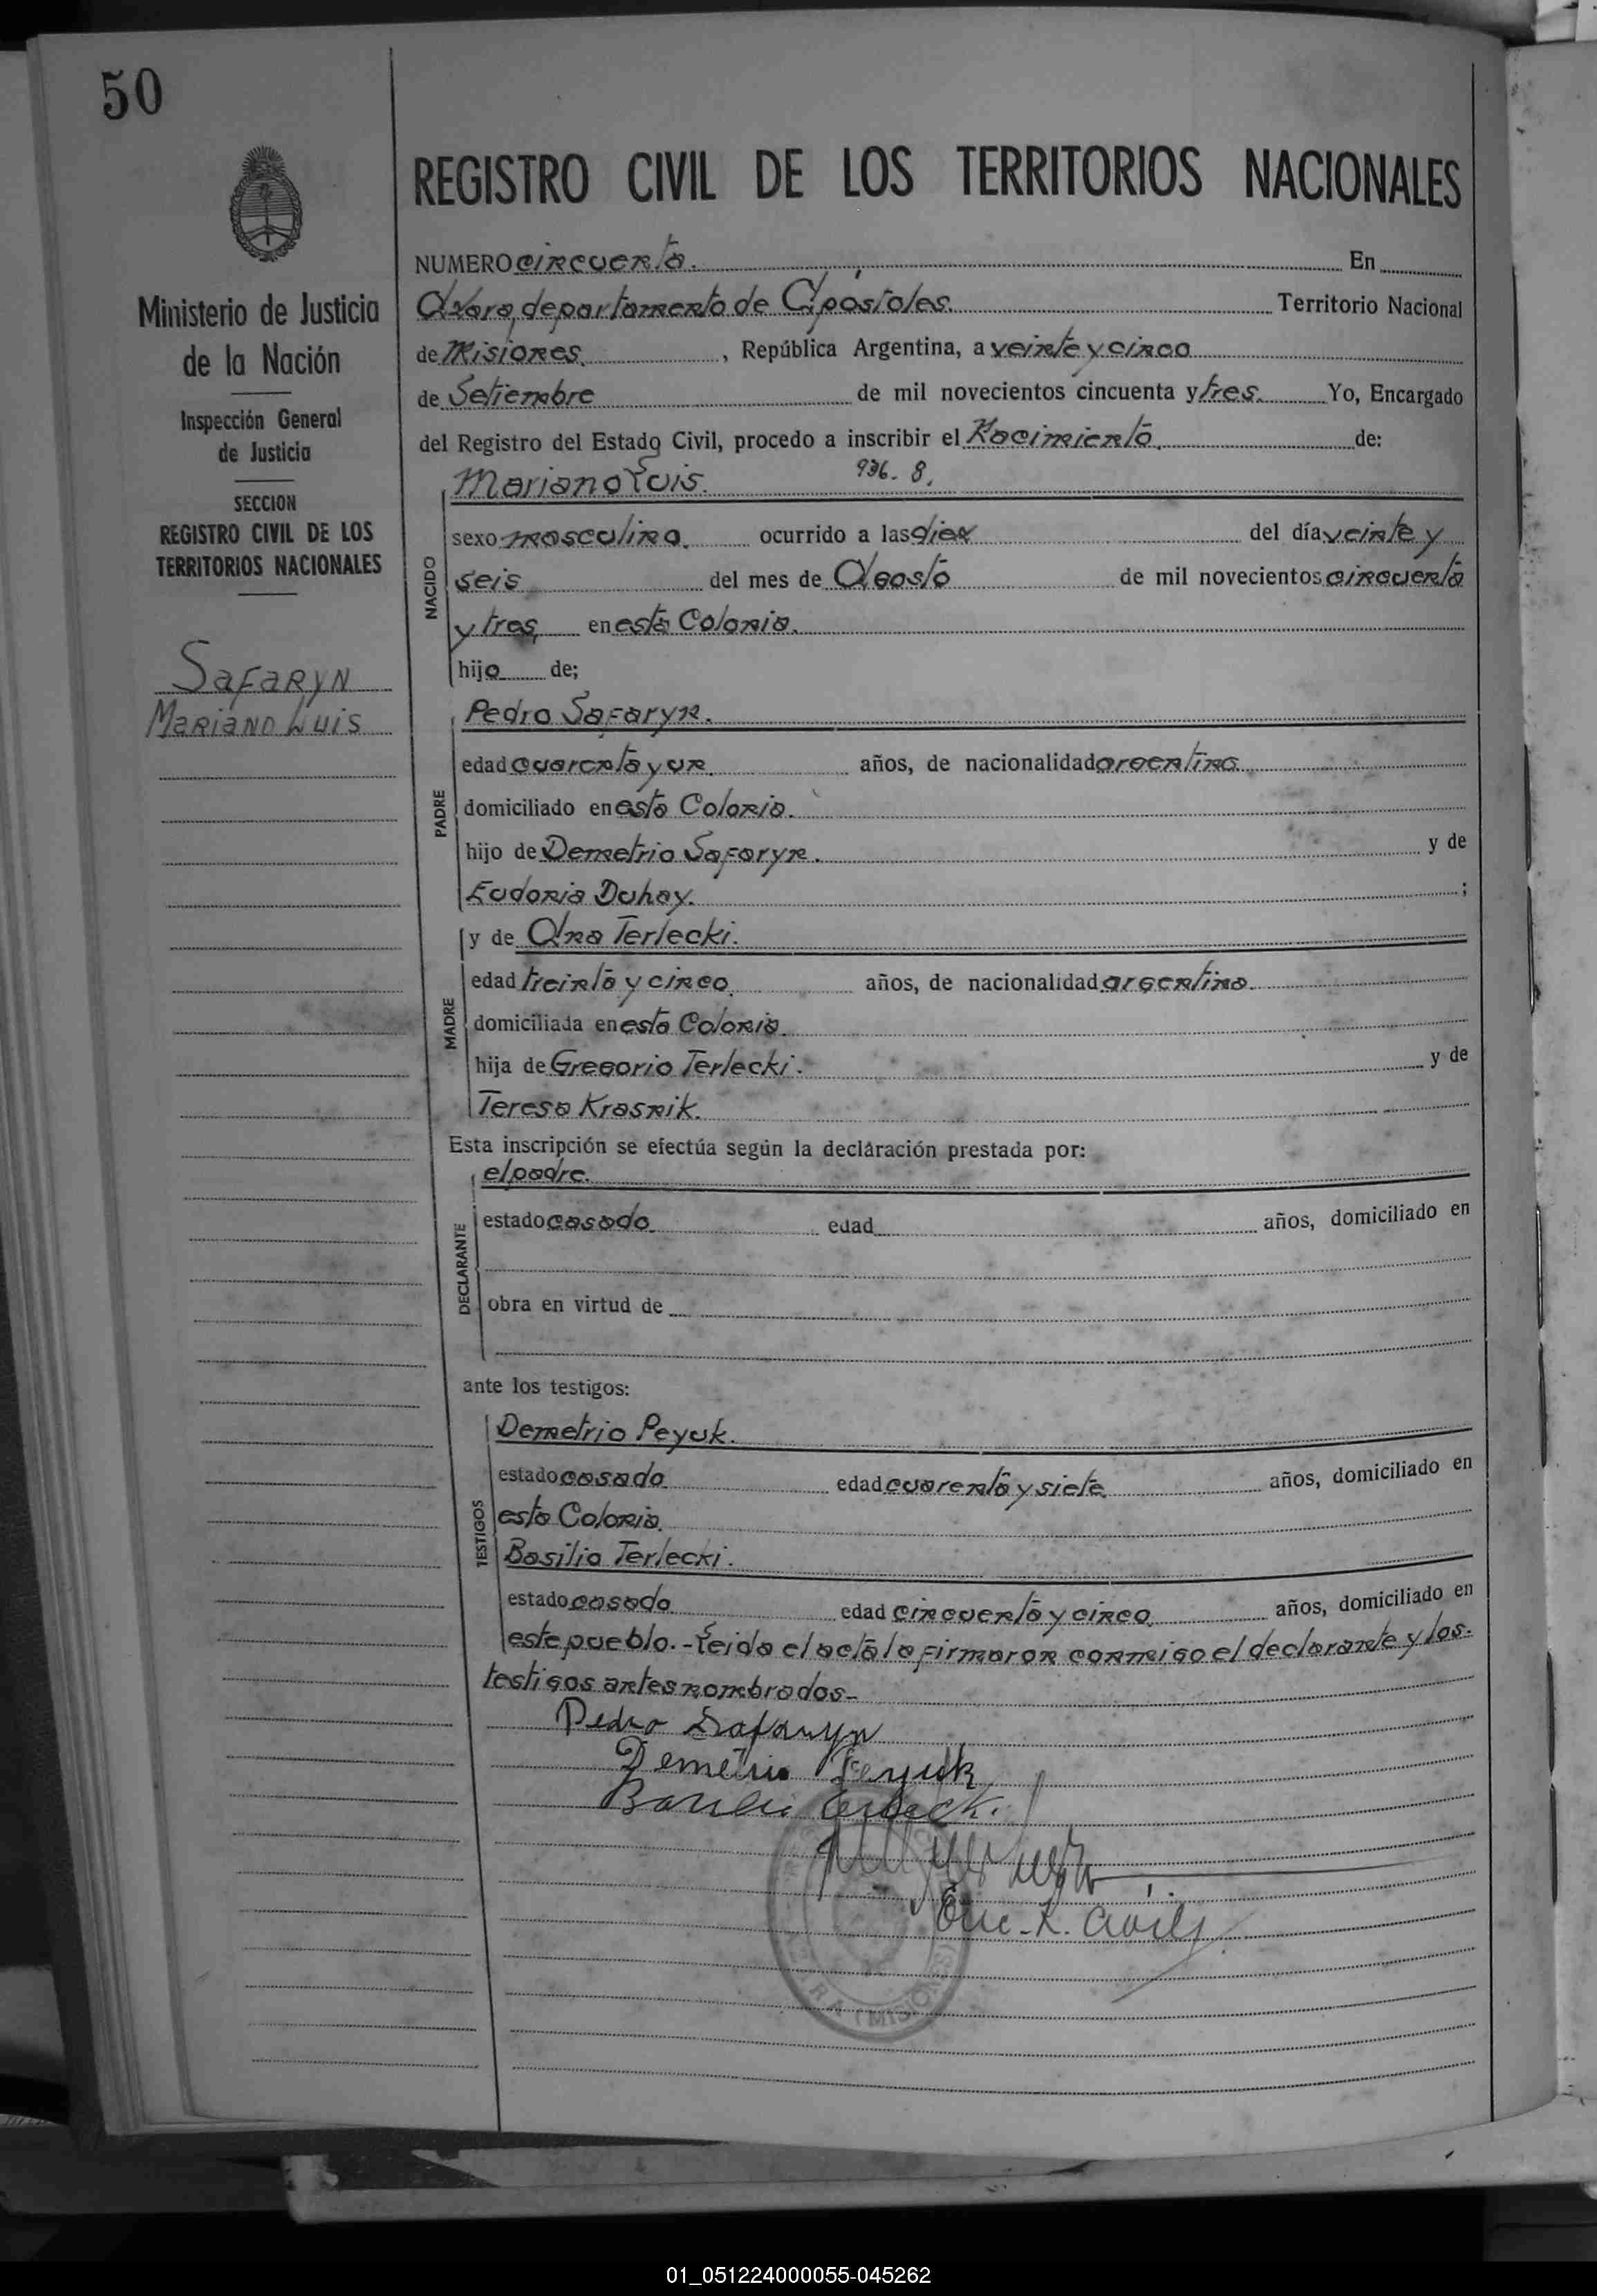 50
Ministerio de Justicia
de la Nación
Inspección General
de Justicia
SECCION
REGISTRO CIVIL DE LOS
TERRITORIOS NACIONALES
Safaryn
Mariano Luis
REGISTRO CIVIL DE LOS TERRITORIOS NACIONALES
NUMERO cincuenta. En
Azara, departamento de Apóstoles. Territorio Nacional
de Misiones, República Argentina, a veinte y cinco
de Setiembre de mil novecientos cincuenta y tres. Yo, Encargado
del Registro del Estado Civil, procedo a inscribir el Nacimiento. de:
Mariano Luis. 936. 8.
NACIDO
sexo masculino. ocurrido a las diez del día veinte y
seis del mes de Agosto de mil novecientos cincuenta
y tres, en esta Colonia.
hijo de;
PADRE
Pedro Safaryn.
edad cuarenta y un. años, de nacionalidad argentina
domiciliado en esta Colonia.
hijo de Demetrio Safaryn. y de
Eudonia Duhay. ;
MADRE
y de Ana Terlecki.
edad treinta y cinco años, de nacionalidad argentina.
domiciliada en esta Colonia.
hija de Gregorio Terlecki. y de
Teresa Krasnik.
Esta inscripción se efectúa según la declaración prestada por:
DECLARANTE
el padre.
estado casado edad años, domiciliado en
obra en virtud de
ante los testigos:
TESTIGOS
Demetrio Peyuk.
estado casado edad cuarenta y siete años, domiciliado en
esta Colonia.
Basilio Terlecki.
estado casado edad cincuenta y cinco años, domiciliado en
este pueblo.- Leida el acta la firmaron conmigo el declarante y los
testigos antes nombrados-
Pedro Safaryn
Demetrio Peyuk
Basilio Terlecki
Enc. R. Civil
01_051224000055-045262